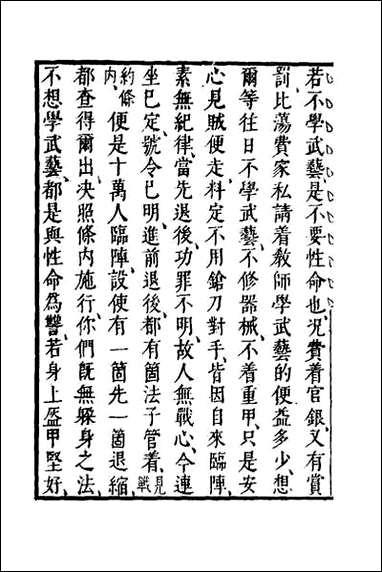 若不學武藝、是不要性命也、況費着官銀、又有賞
罰、比蕩費家私請着敎師學武藝的便益多少、想
爾等往日不學武藝、不修器械、不着重甲、只是安
心見賊便走、料定不用鎗刀對手、皆因自來臨陣、
素無紀律、當先退後、功罪不明、故人無戰心、今連
坐已定、號令已明、進前退後、都有箇法子管着、見戰
約條內、便是十萬人臨陣、設使有一箇先一箇退縮、
都查得爾出、決照條內施行、你們旣無躱身之法、
不想學武藝、都是與性命爲讐、若身上盔甲堅好、